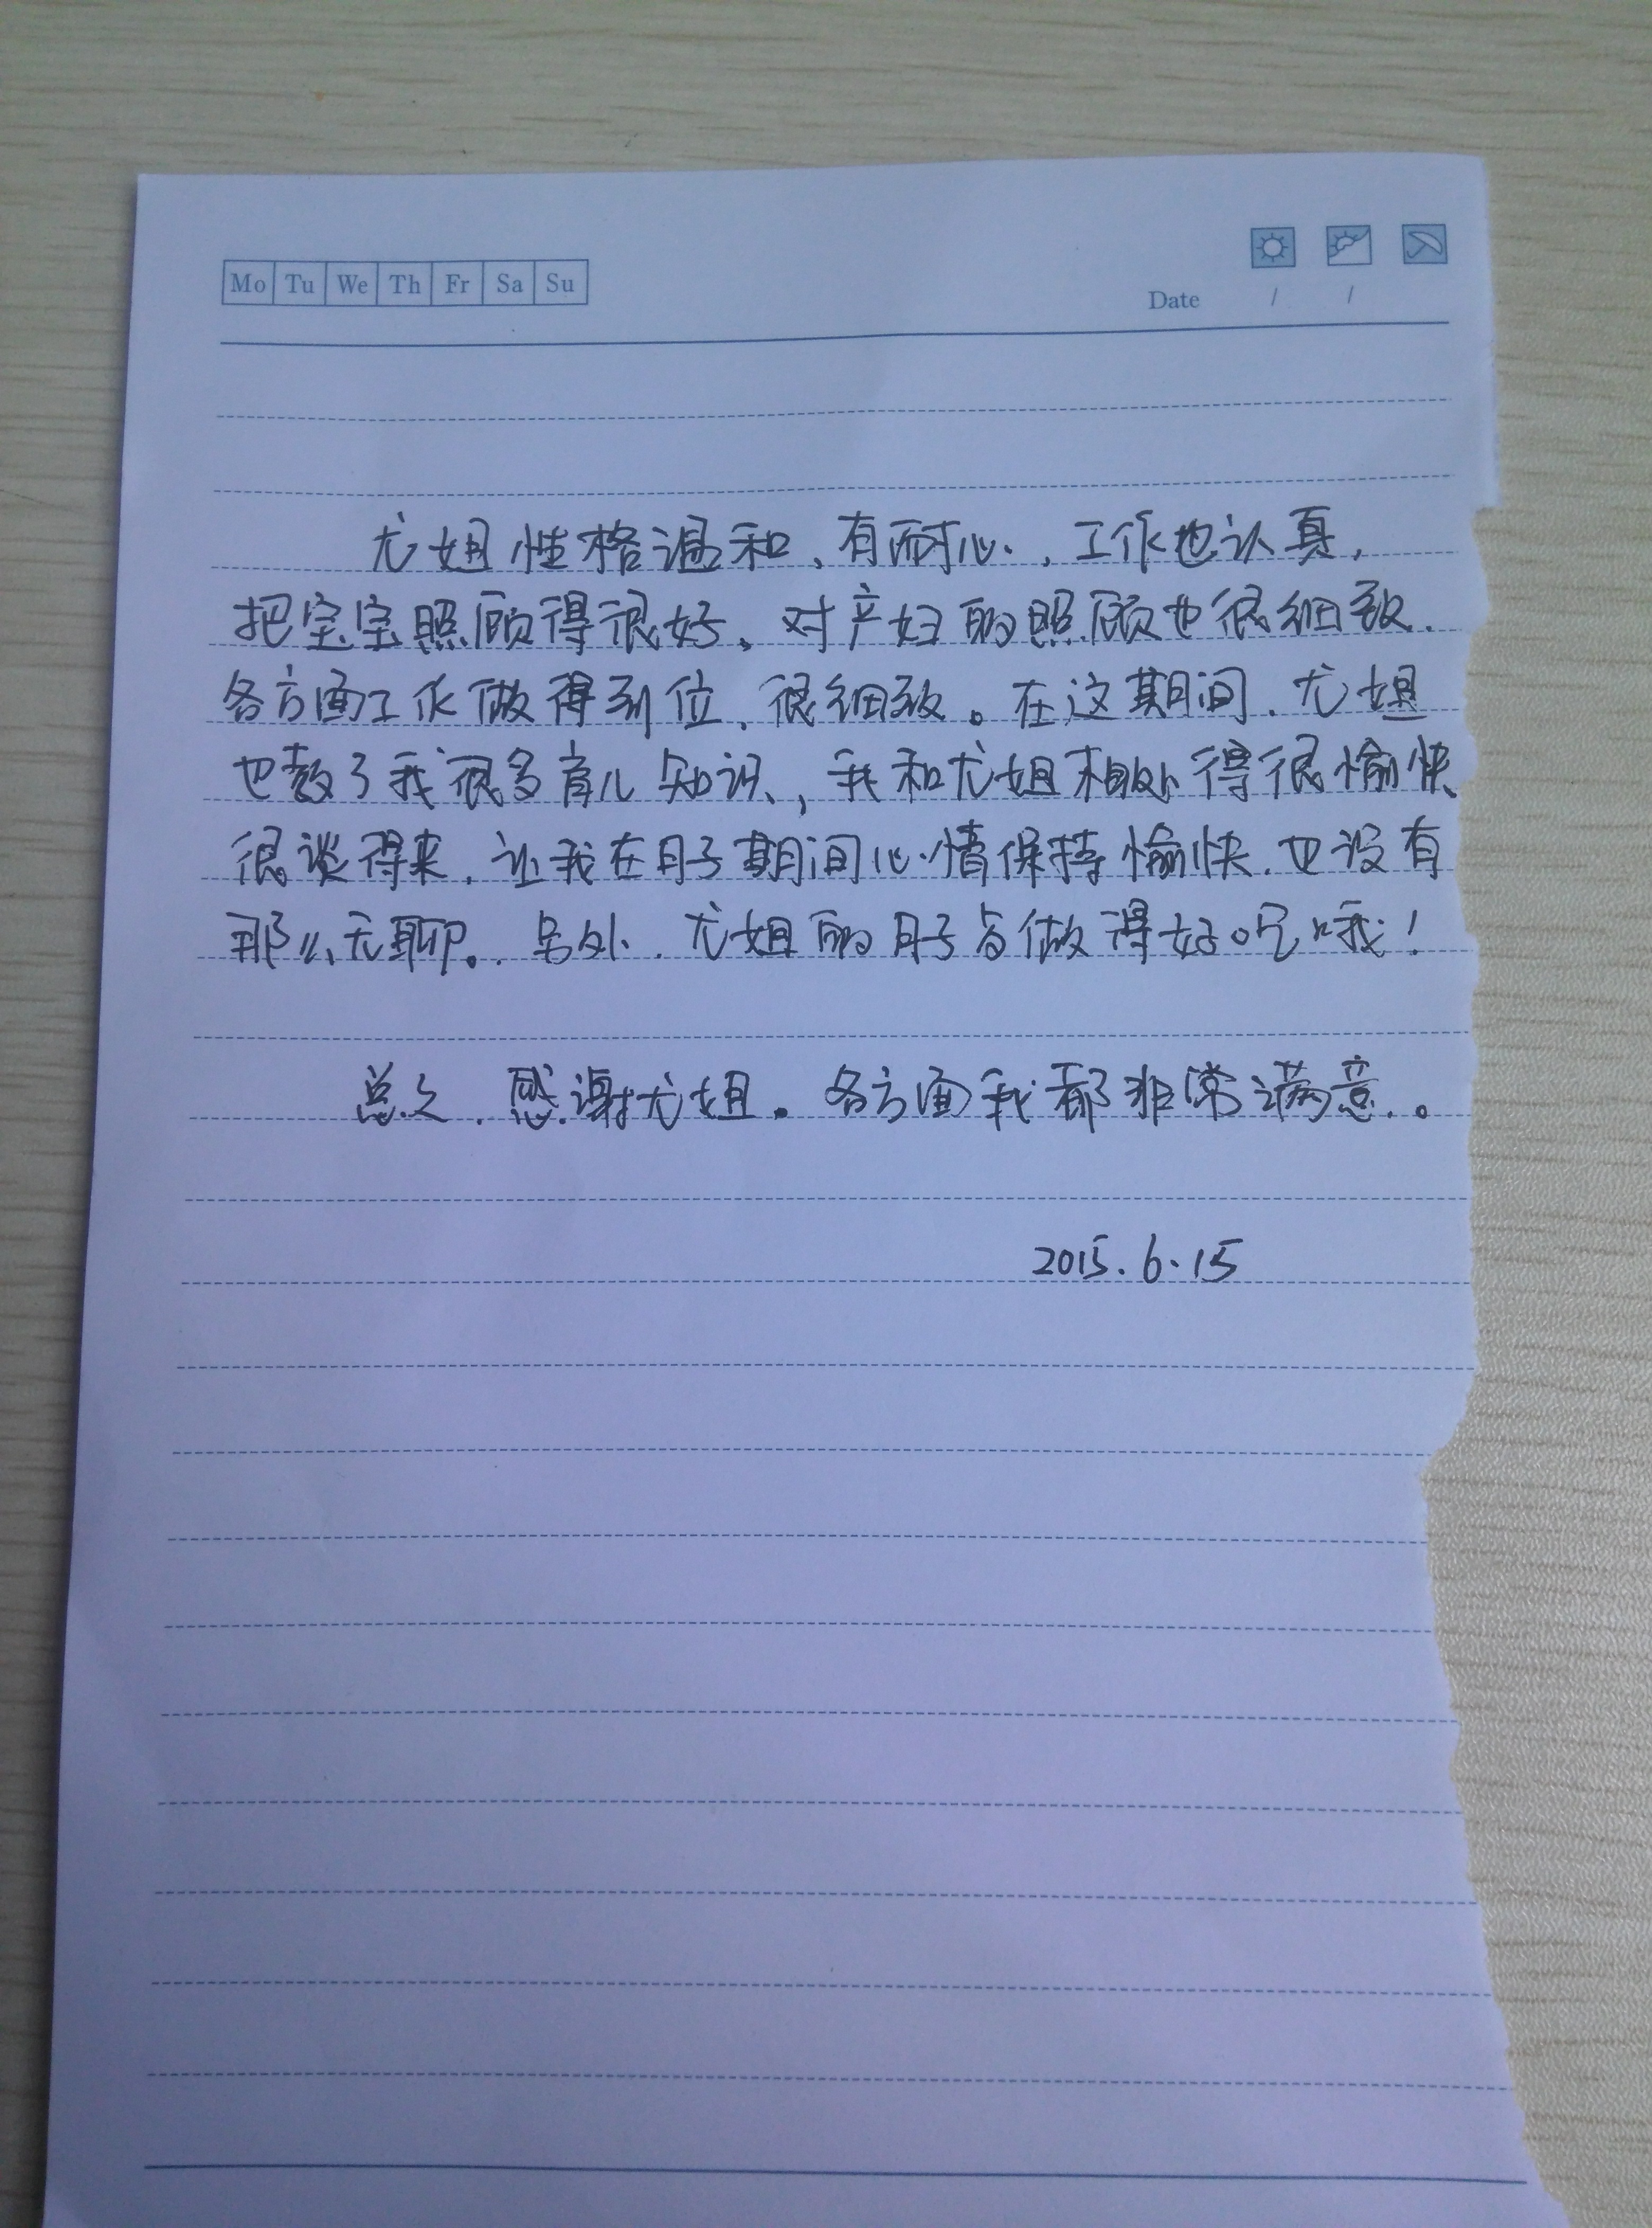 Mo Tu We Th Fr Sa Su
Date / /
尤姐性格温和、有耐心,工作也认真,
把宝宝照顾得很好、对产妇的照顾也很细致.
各方面工作做得到位、很细致。在这期间、尤姐
也教了我很多育儿知识,我和尤姐相处得很愉快、
很谈得来,让我在月子期间心情保持愉快.也没有
那么无聊。另外.尤姐的月子歺做得好吃哦!
总之.感谢尤姐。各方面我都非常满意。
2015.6.15